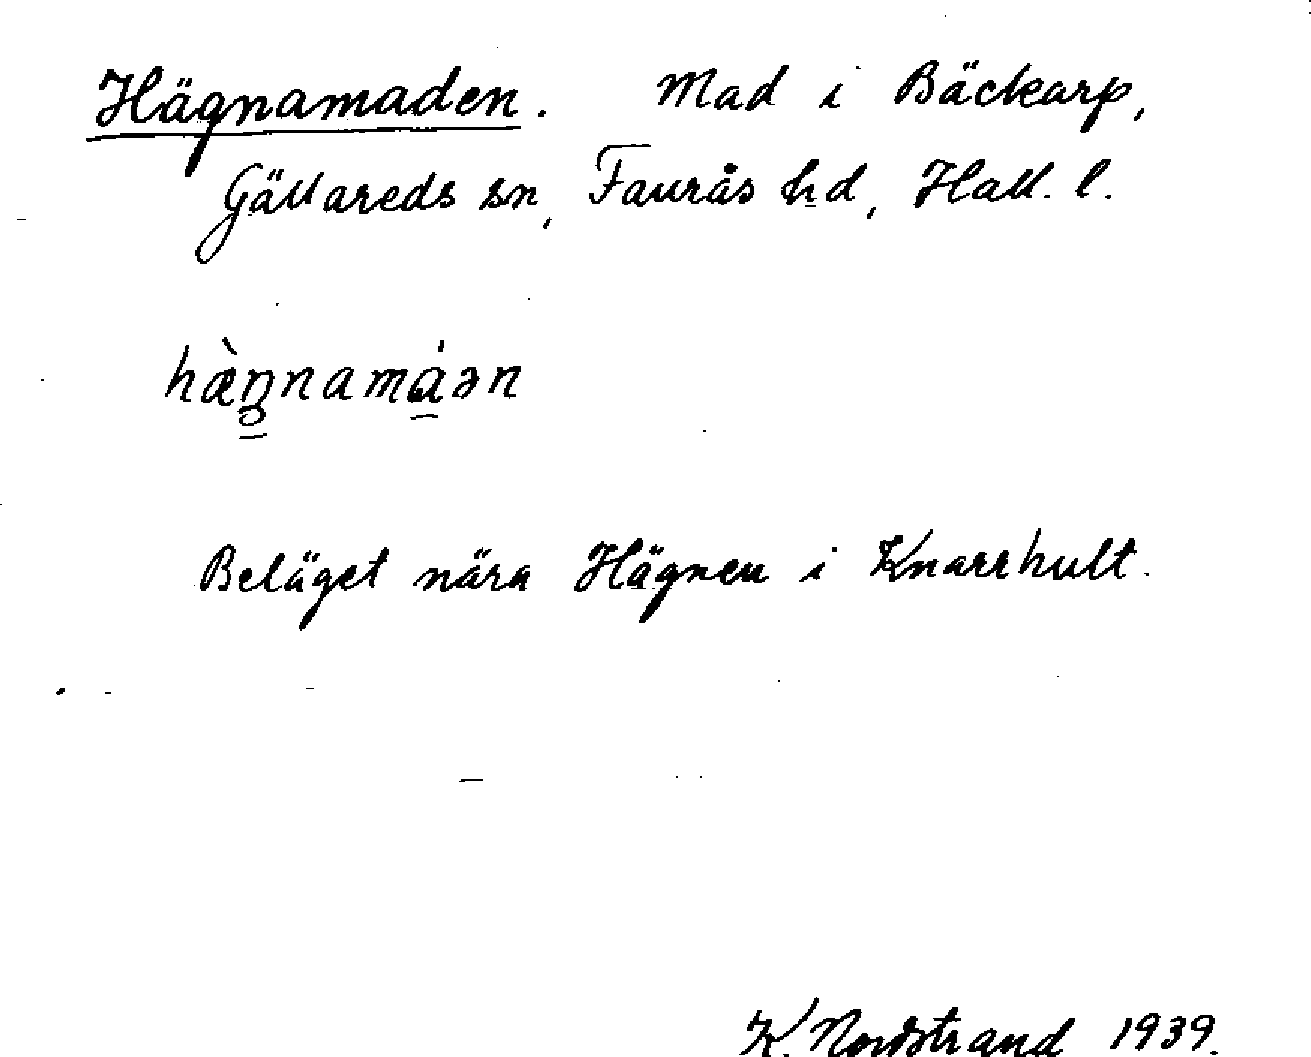 Hägnamaden. Mad i Bäckarp,
Gällareds sn, Faurås hd, Hall. l.
hæ̀ŋnamáən
Beläget nära Hägnen i Knarrhult.
K. Nordstrand 1939.